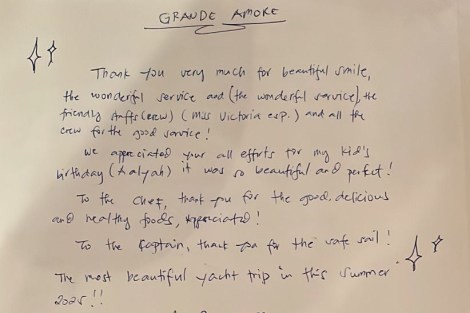 GRANDE AMORE
Thank you very much for beautiful smile,
the wonderful service and (the wonderful service), the
friendly staffs (crew) (Miss Victoria esp.) and all the
crew for the good service!
We appreciated your all efforts for my kid's
birthday (Aalyah) it was so beautiful and perfect!
To the Chef, thank you for the good, delicious
and healthy foods, Appreciated!
To the Captain, thank you for the safe sail!
The most beautiful yacht trip in this summer
2025!!